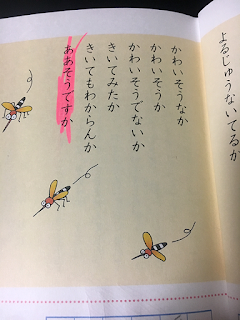 よるじゅうないてるか
かわいそうなか
かわいそうか
かわいそうでないか
きいてみたか
きいてもわからんか
ああそうですか